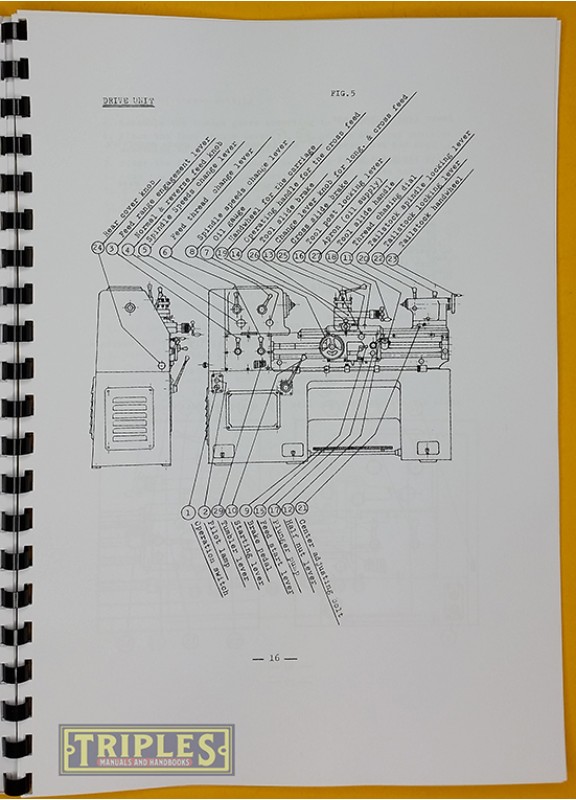 DRIVE UNIT
FIG.5
Rear cover knob
Feed range engagement lever
Normal & reverse feed knob
Spindle speeds change lever
Feed thread change lever
Spindle speeds change lever
Oil gauge
Handwheel for the carriage
Operating handle for the cross feed
Tool slide brake
Change lever knob for long. & cross feed
Cross slide brake
Tool post locking lever
Apron (oil supply)
Tool slide handle
Thread chasing dial
Tailstock spindle locking lever
Tailstock locking lever
Tailstock handwheel
24 3 4 5 6 8 7 19 14 26 13 25 16 27 18 11 20 22 23
1 2 29 10 9 15 17 12 21
Operation switch
Pilot lamp
Tumbler lever
Starting lever
Brake pedal
Feed start lever
Plunger pump
Half nut lever
Center adjusting bolt
— 16 —
TRIPLES
MANUALS AND HANDBOOKS